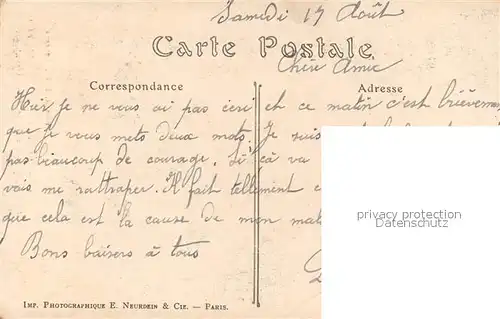 Samedi 17 Août
Carte Postale
Chère Amie
Correspondance
Adresse
Hier je ne vous ai pas écri et ce matin c'est brièvemen
que je vous mets deux mots. Je suis
pas beaucoup de courage, si cà va
vais me rattraper. Il fait tellement
que cela est la cause de mon mal
Bons baisers à tous
privacy protection
Datenschutz
IMP. PHOTOGRAPHIQUE E. NEURDEIN & CIE. — PARIS.